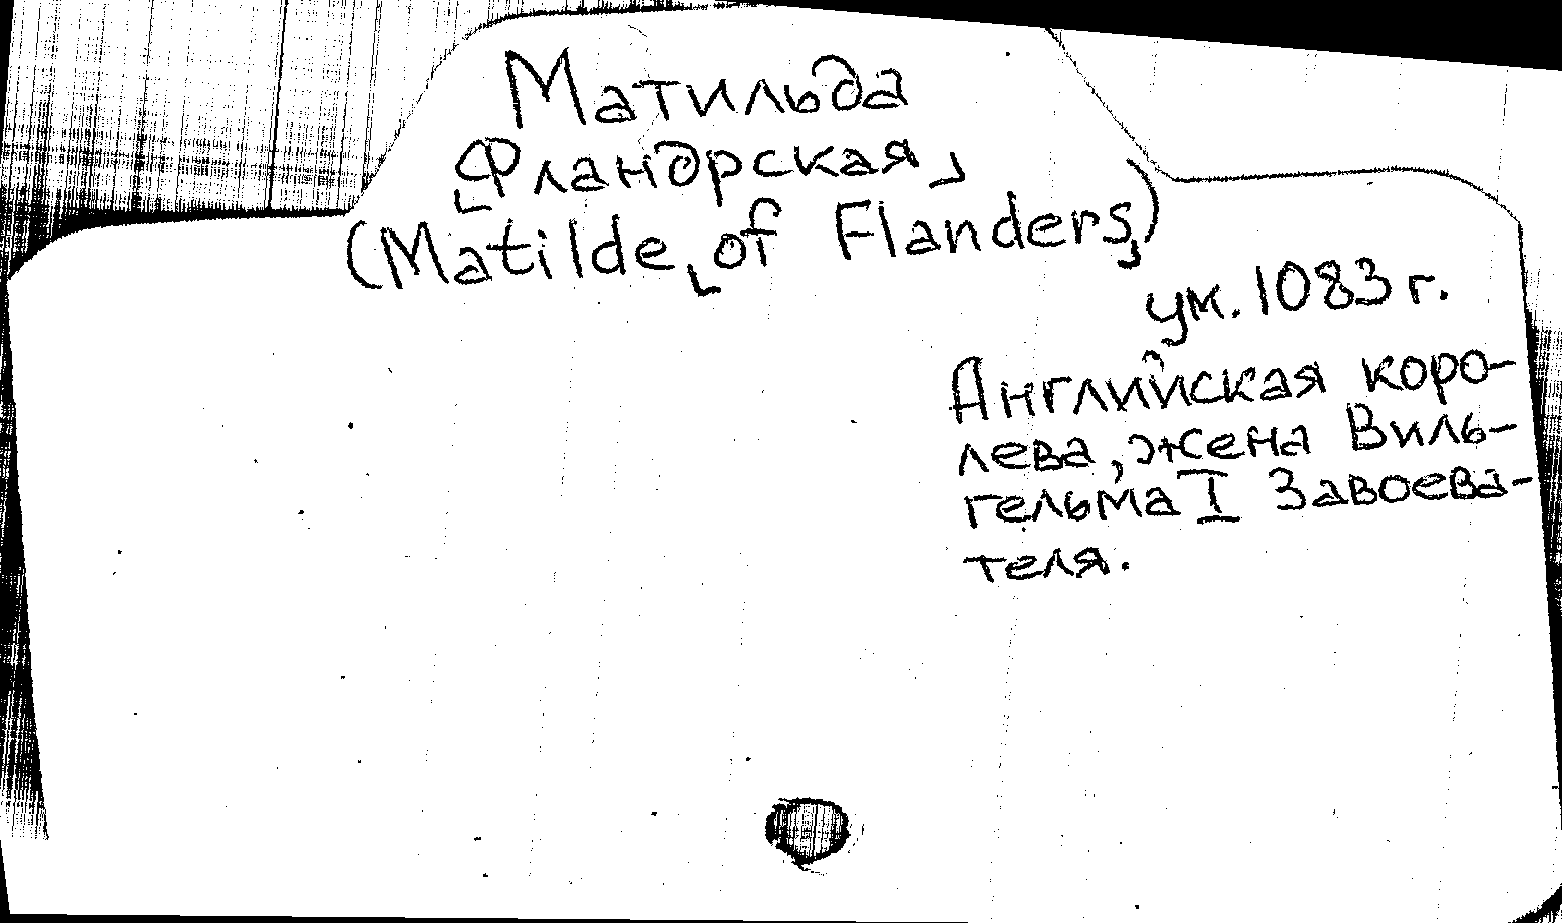 Матильда
Фландрская,
(Matilde of Flanders)
ум. 1083 г.
Английская коро-
лева, жена Виль-
гельма I Завоева-
теля.